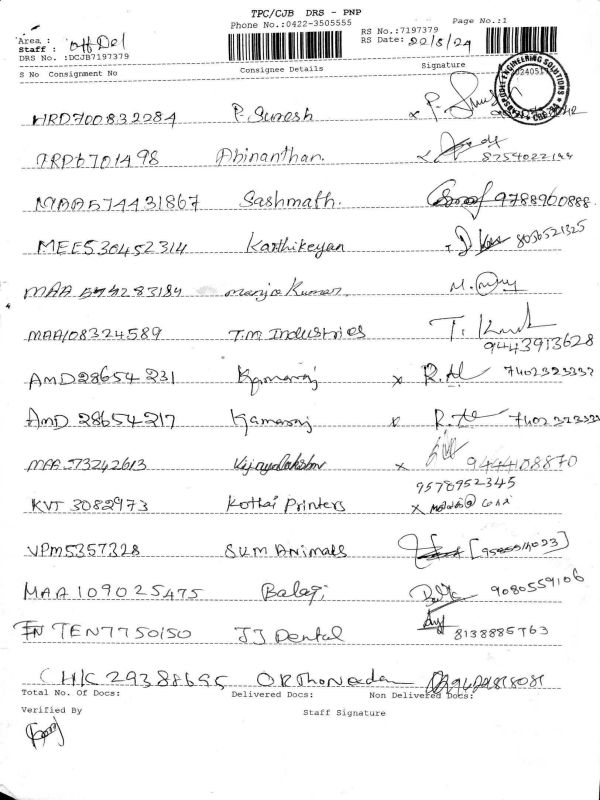 TPC/CJB DRS - PNP
Phone No.:0422-3505555 Page No.:1
Area : Off Del RS No.:7197379
Staff : RS Date: 22/8/24
DRS No. :DCJB7197379
S No Consignment No Consignee Details Signature
HRD700832284 P. Suresh
TRP6701498 Abinanthan. 8754022144
MAA574431867 Sashmath. 9788960888
MEE530452314 Karthikeyan 8056521325
MAA 283184 Manjo Kumar. M.
MAA108324589 T.M Industries T.
9443913628
AMD28654231 Kamaraj x R. 7402323332
AMD 28654217 Kamaraj x R. 7402323332
MAA573242613 Vijayalakshmi x 9444108870
9578952345
KVT 3082973 Kottai Printers x
VPM5357328 SKM Animals
MAA109025475 Balaji 9080559106
TEN7750150 JJ Dental 8138885763
CHK29388695 Orthoneedam 9429818081
Total No. Of Docs: Delivered Docs: Non Delivered Docs:
Verified By Staff Signature